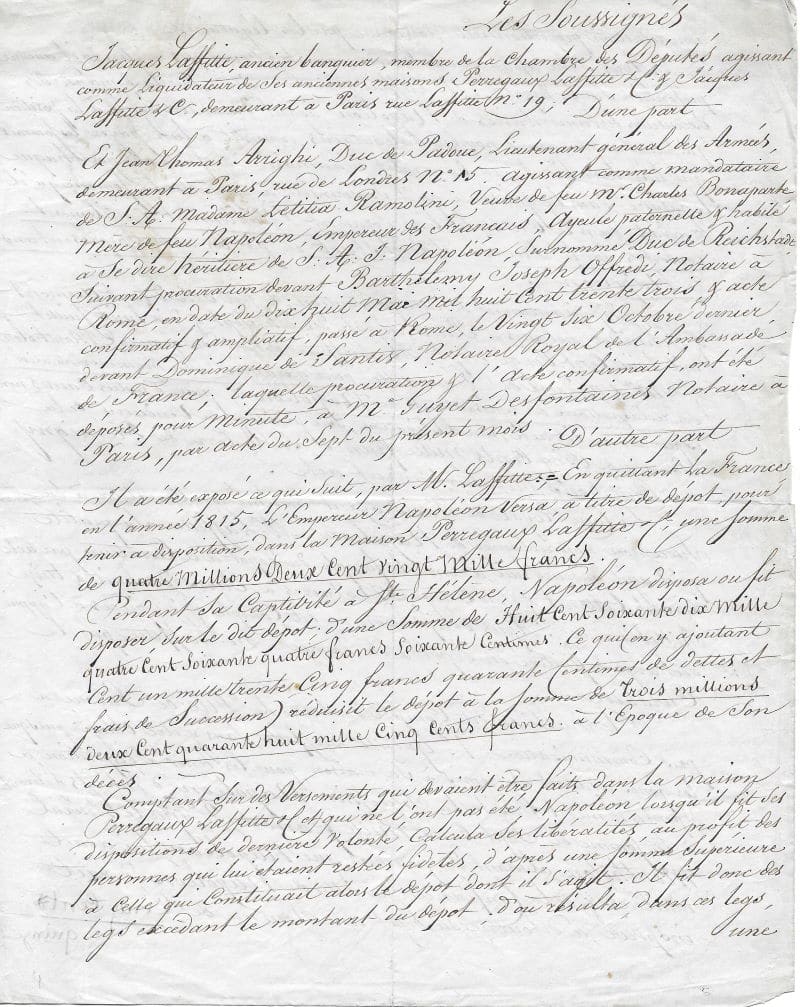 Les Soussignés
Jacques Laffitte, ancien banquier, membre de la Chambre des Députés agissant
comme Liquidateur de Ses anciennes maisons Perregaux Laffitte & Cie & Jacques
Laffitte & Ce, demeurant à Paris rue Laffitte No 19; D'une part
Et Jean Thomas Arrighi, Duc de Padoue, Lieutenant général des Armées,
demeurant à Paris, rue de Londres No 15. agissant comme mandataire
de S. A. Madame Letitia Ramolini, Veuve de feu Mr Charles Bonaparte
Mere de feu Napoléon, Empereur des Français, Ayeule paternelle & habile
à Se dire héritière de S. A. I. Napoléon Surnommé Duc de Reichstadt
Suivant procuration devant Barthélemy Joseph Offredi, Notaire à
Rome, en date du dix huit Mai Mil huit Cent trente trois & acte
confirmatif & ampliatif, passé à Rome, le Vingt Six Octobre dernier
devant Dominique de Santis, Notaire Royal de l'Ambassade
de France; laquelle procuration & l'acte confirmatif, ont été
déposés pour Minute, à Me Guyet Desfontaines Notaire à
Paris, par acte du Sept du présent mois. D'autre part
Il a été exposé ce qui suit, par M. Laffitte = En quittant la France
en l'année 1815, L'Empereur Napoléon Versa à titre de depot, pour
tenir à disposition, dans la Maison Perregaux Laffitte & Ce, une Somme
de quatre Millions Deux Cent Vingt Mille francs.
Pendant Sa Captivité à Ste Hélène, Napoléon disposa ou fit
disposer, Sur le dit dépot, d'une Somme de Huit Cent Soixante dix Mille
quatre Cent Soixante quatre francs Soixante Centimes. Ce qui (en y ajoutant
Cent un mille trente Cinq francs quarante Centimes de dettes et
frais de Succession) réduisit le dépot à la Somme de trois millions
deux Cent quarante huit mille Cinq Cents francs. à l'Epoque de Son
décès.
Comptant Sur des Versements qui devaient être faits dans la maison
Perregaux Laffitte & Ce et qui ne l'ont pas été, Napoléon lorsqu'il fit Ses
dispositions de dernière Volonté, Calcula Ses libéralités, au profit des
personnes qui lui étaient restées fidèles, d'après une Somme Supérieure
à Celle qui Constituait alors le depot dont il S'agit. Il fit donc des
legs excédant le montant du dépot; d'où résulta, dans ces legs,
une